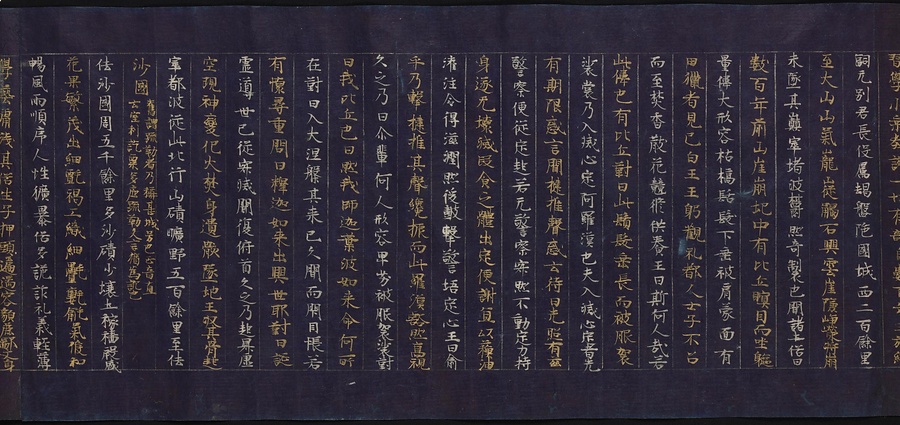 學小乘教說一切有部
嗣无別君長役属朅盤陁國城西二百餘里
至大山山氣巃嵸觸石興雲崖隒崢嶸將崩
未墜其巔窣堵波鬱然奇製也聞諸土俗曰
數百年前山崖崩圮中有比丘瞑目而坐軀
量偉大形容枯槁鬚髮下垂被肩蒙面有
田獵者見已白王王躬觀礼都人士子不召
而至焚香散花競修供養王曰斯何人哉若
此偉也有比丘對曰此鬚髮垂長而被服袈
裟乃入滅心定阿羅漢也夫入滅心定者先
有期限或言聞揵椎聲或云待日光照有茲
警察便從定起若无警察寂然不動定力持
身遂无壞滅段食之體出定便謝宜以蘇油
灌注令得滋潤然後鼓擊警悟定心王曰俞
乎乃擊揵椎其聲纔振而此羅漢豁然高視
久之乃曰尒輩何人形容卑劣被服袈裟對
曰我比丘也曰然我師迦葉波如來今何所
在對曰入大涅槃其來已久聞而閉目悵若
有懷尋重問曰釋迦如來出興世耶對曰誕
靈導世已從寂滅聞復俯首久之乃起昇虛
空現神變化火焚身遺骸墜地王收其骨起
窣都波從此北行山磧曠野五百餘里至佉
沙國舊謂疏勒者乃稱其城号也正音宜云室利訖栗多底疏勒之言猶為訛也
佉沙國周五千餘里多沙磧少壤土稼穡殷盛
花果繁茂出細氈褐工織細氈氍毹氣候和
暢風雨順序人性獷暴俗多詭詐礼義輕薄
學藝膚淺其俗生子押頭匾㔸容貌麁鄙文身